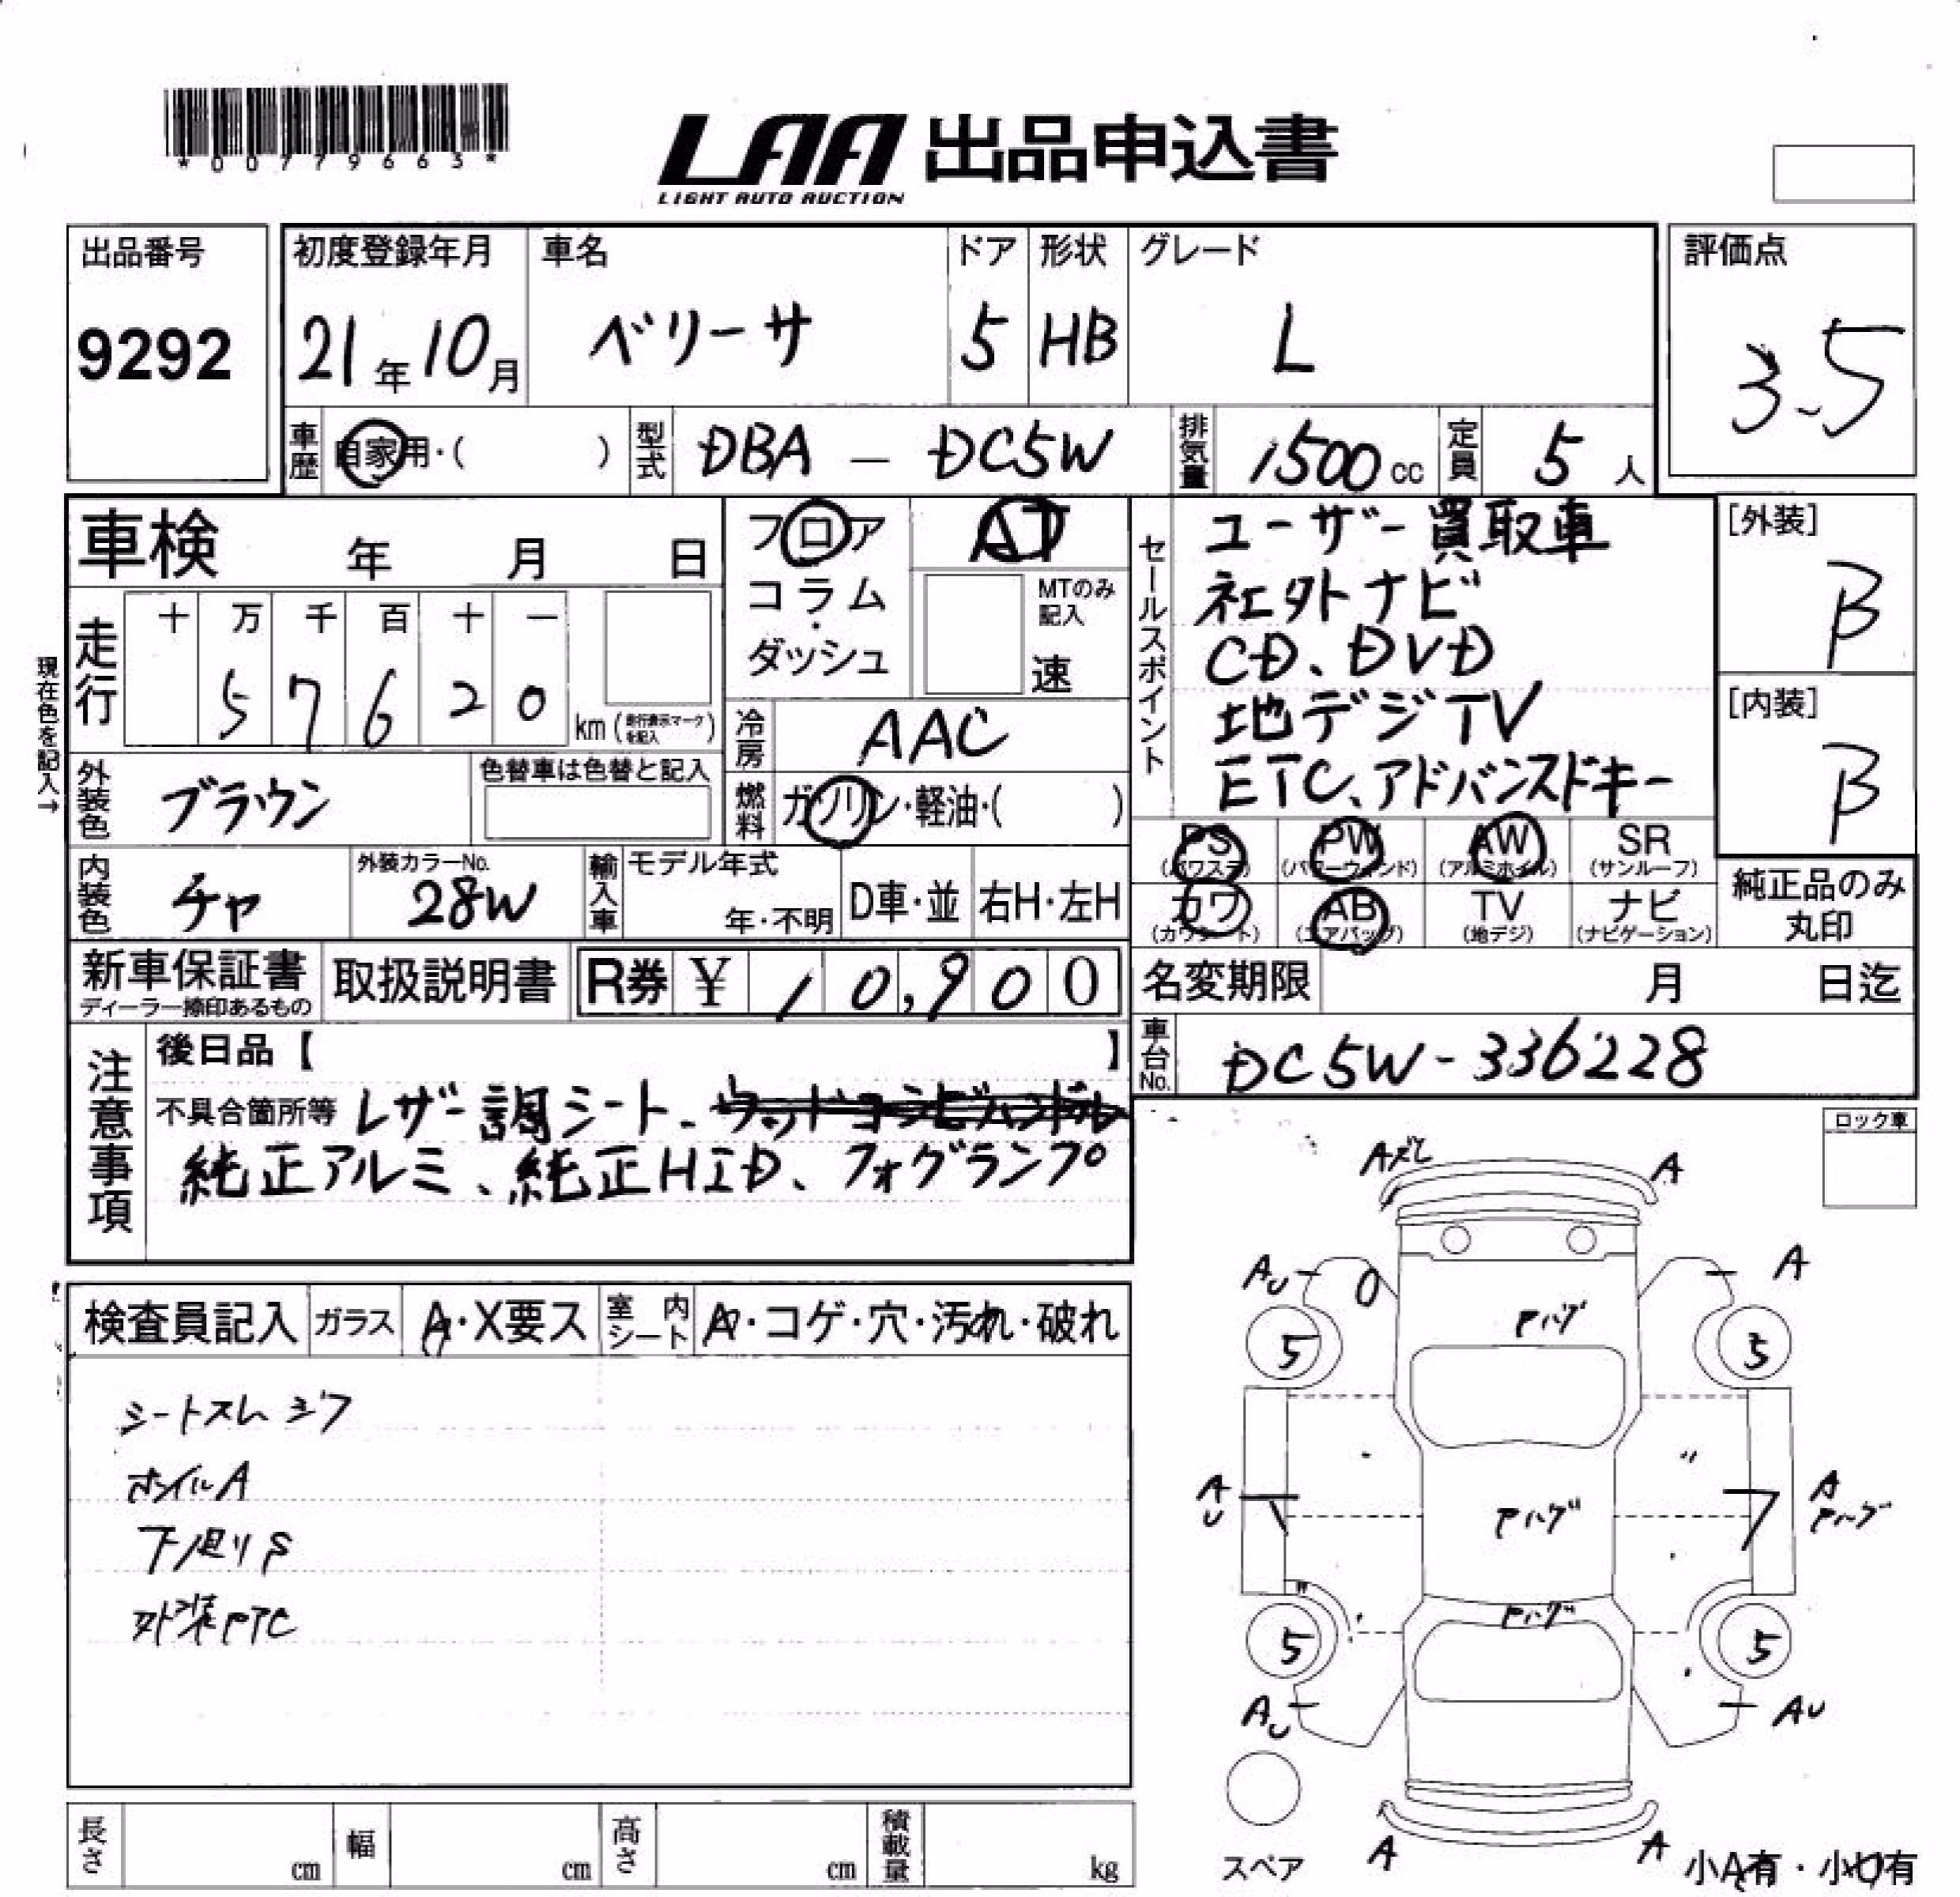 *00779663*
LAA 出品申込書
LIGHT AUTO AUCTION
出品番号
9292
初度登録年月
21年10月
車名
ベリーサ
ドア
5
形状
HB
グレード
L
評価点
3.5
車歴
自家用・( )
型式
DBA - DC5W
排気量
1500cc
定員
5人
車検 年 月 日
フロア
コラム・
ダッシュ
AT
MTのみ記入
速
セールスポイント
ユーザー買取車
社外ナビ
CD、DVD
地デジTV
ETC、アドバンスドキー
[外装]
B
[内装]
B
現在色を記入→
走行
十 万 千 百 十 一
5 7 6 2 0 km (走行表示マークを記入)
冷房
AAC
外装色
ブラウン
色替車は色替と記入
燃料
ガソリン・軽油・( )
PS (パワステ)
PW (パワーウィンド)
AW (アルミホイル)
SR (サンルーフ)
カワ (カワシート)
AB (エアバッグ)
TV (地デジ)
ナビ (ナビゲーション)
純正品のみ
丸印
内装色
チャ
外装カラーNo.
28W
輸入車
モデル年式
年・不明
D車・並
右H・左H
新車保証書
ディーラー捺印あるもの
取扱説明書
R券 ¥ 10,900
名変期限 月 日迄
車台No.
DC5W-336228
注意事項
後日品【 】
不具合箇所等 レザー調シート、
純正アルミ、純正HID、フォグランプ
ロック車
検査員記入 ガラス A・X要ス 室内シート A・コゲ・穴・汚れ・破れ
シートスレ シワ
ホイルA
下廻りS
外装PTC
A A
AU A
Pハゲ
5 3
A
U
Pハゲ
A
Pハゲ
Pハゲ
5 5
AU AU
A A
スペア
小A有・小U有
長さ cm 幅 cm 高さ cm 積載量 kg